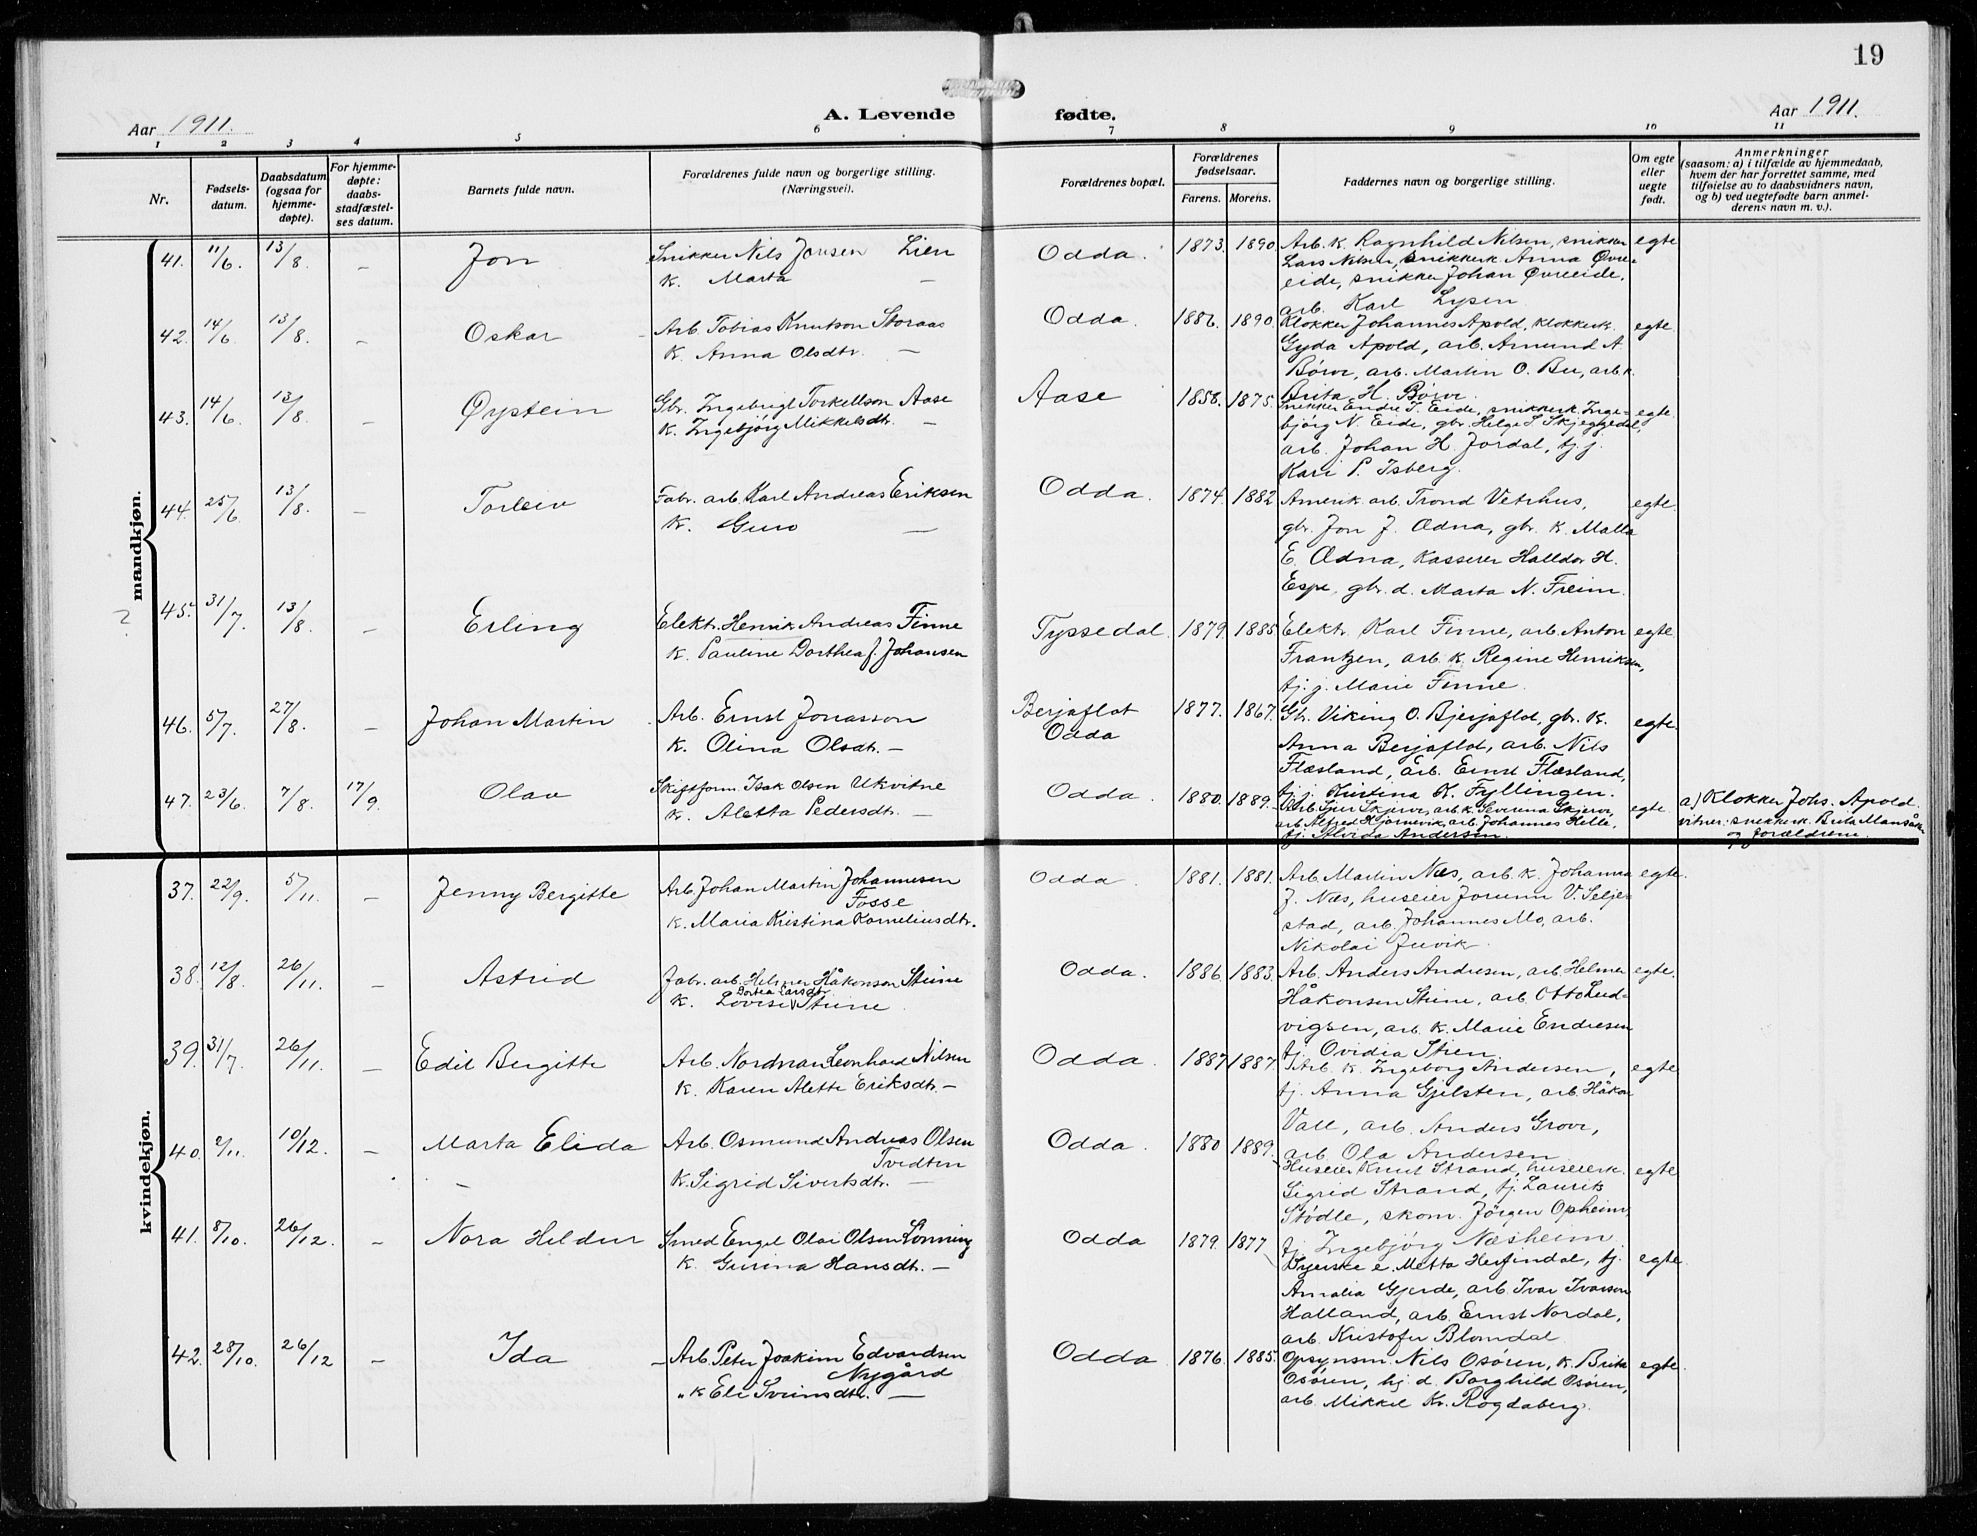 19
Aar 1911. A. Levende fødte. Aar 1911.
1 2 3 4 5 6 7 8 9 10 11
Nr.
Fødsels-
datum.
Daabsdatum
(ogsaa for
hjemme-
døpte).
For hjemme-
døpte:
daabs-
stadfæstel-
ses datum.
Barnets fulde navn.
Forældrenes fulde navn og borgerlige stilling.
(Næringsvei).
Forældrenes bopæl.
Forældrenes
fødselsaar.
Farens. Morens.
Faddernes navn og borgerlige stilling.
Om egte
eller
uegte
født.
Anmerkninger
(saasom: a) i tilfælde av hjemmedaab,
hvem der har forrettet samme, med
tilføielse av to daabsvidners navn,
og b) ved uegtefødte barn anmel-
derens navn m. v.).
mandkjøn.
41. 11/6. 13/8. – Jon Snikker Nils Jonsen Lien Odda. 1873. 1890. Arb. k. Ragnhild Nilsen, snikker egte
k. Marta — Lars Nilsen, snikkerk. Anna Øvre-
eide, snikker Johan Øvreeide,
arb. Karl Lysen
42. 14/6. 13/8. – Oskar Arb. Tobias Knutson Storaas Odda. 1886. 1890. Klokker Johannes Apold, klokkerk. egte
k. Anna Olsdtr. — Gyda Apold, arb. Amund A
Børve, arb. Martin O. Bu, arb. k.
Brita H. Børve
43. 14/6. 13/8. – Øystein Gbr. Ingebrigt Torkellson Aase Aase 1858. 1875. Snikker Endre T. Eide, snikkerk. Inge- egte
k. Ingebjørg Mikkelsdtr. — bjørg N. Eide, gbr. Helge S Skjeggedal,
arb. Johan H. Jordal, tj. j.
Kari P. Isberg.
44. 25/6. 13/8. – Torleiv Fabr. arb. Karl Andreas Eriksen Odda. 1874. 1882 Amerik. arb. Trond Vetrhus, egte.
k. Guro — gbr. Jon J. Ædna, gbr. k. Malla
E. Ædna, kasserer Halldor H.
Espe, gbr. d. Marta N. Freim.
? 45. 31/7. 13/8. – Erling Elektr. Henrik Andreas Finne Tyssedal. 1879. 1885 Elektr. Karl Finne, arb. Anton egte
k. Pauline Dorthea f. Johansen Frantzen, arb. k. Regine Henriksen,
tj. j. Marie Finne.
46. 5/7. 27/8. – Johan Martin Arb. Ernst Jonasson Berjaflot 1877. 1867. Gbr. Viking O. Bjerjaflot, gbr. k. egte.
k. Olina Olsdtr. — Odda Anna Berjaflot, arb. Nils
Flæsland, arb. Ernst Flæsland,
tj. j. Kristina K. Fyllingen.
47. 23/6. 7/8. 17/9. Olav Skiftform. Isak Olsen Ukvitne Odda. 1880. 1889. Arb. Sjur Skjerve, arb. k. Severina Skjerve egte a) Klokker Johs. Apold.
k. Aletta Pedersdtr. — arb. Alfred Kjørnevik, arb. Johannes Helle, vitner: snekkerk. Brita Mansåker
tj. Alvida Andersen. og forældrene.
kvindekjøn.
37. 22/9. 5/11. – Jenny Bergitte Arb. Johan Martin Johannesen Odda. 1881. 1881. Arb. Martin Næs, arb. k. Johanna egte.
Fosse J. Næs, huseier Jorunn V. Selje-
k. Maria Kristina Korneliusdtr. stad, arb. Johannes Mo, arb.
Nikolai Juvik.
38. 12/8. 26/11. – Astrid Fabr. arb. Helmer Håkonson Stiine Odda. 1886. 1883. Arb. Anders Andresen, arb. Helmer egte.
Dortea Larsdtr.
k. Lovise Stiine. Håkonsen Stiine, arb. Otto Lud-
vigsen, arb. k. Marie Endresen
tj. Ovidia Stien.
39. 31/7. 26/11. – Edit Bergitte Arb. Nordman Leonhard Nilsen Odda. 1887 1887. Arb. k. Ingeborg Andersen, egte
k. Karen Alette Eriksdtr. — tj. Anna Gjelsten, arb. Håkon
Vall, arb. Anders Grove,
arb. Ola Andersen
40. 2/11. 10/12. – Marta Elida Arb. Osmund Andreas Olsen Odda. 1880 1889. Huseier Knut Strand, huseierk. egte
Tvedten Sigrid Strand, tj. Laurits
k. Sigrid Sivertsdtr. — Stødle, skom. Jörgen Opheim,
tj. Ingebjørg Næsheim.
41. 8/10. 26/12. – Nora Heldur Smed Engel Olai Olsen Lönning Odda 1879. 1877 Syerske e. Metta Herfindal, tj. egte
k. Gurina Hansdtr. — Amalia Gjerde, arb. Ivar Ivarson
Halland, arb. Ernst Nordal,
arb. Kristofer Blomdal.
42. 28/10. 26/12 – Ida Arb. Peter Joakim Edvardsen Odda 1876. 1885. Opsynsm. Nils Osören, k. Brita egte.
Nygård Osören, hj. d. Borghild Osören,
„ k Eli Sveinsdtr. — arb. Mikkel Kr. Rogdaberg.